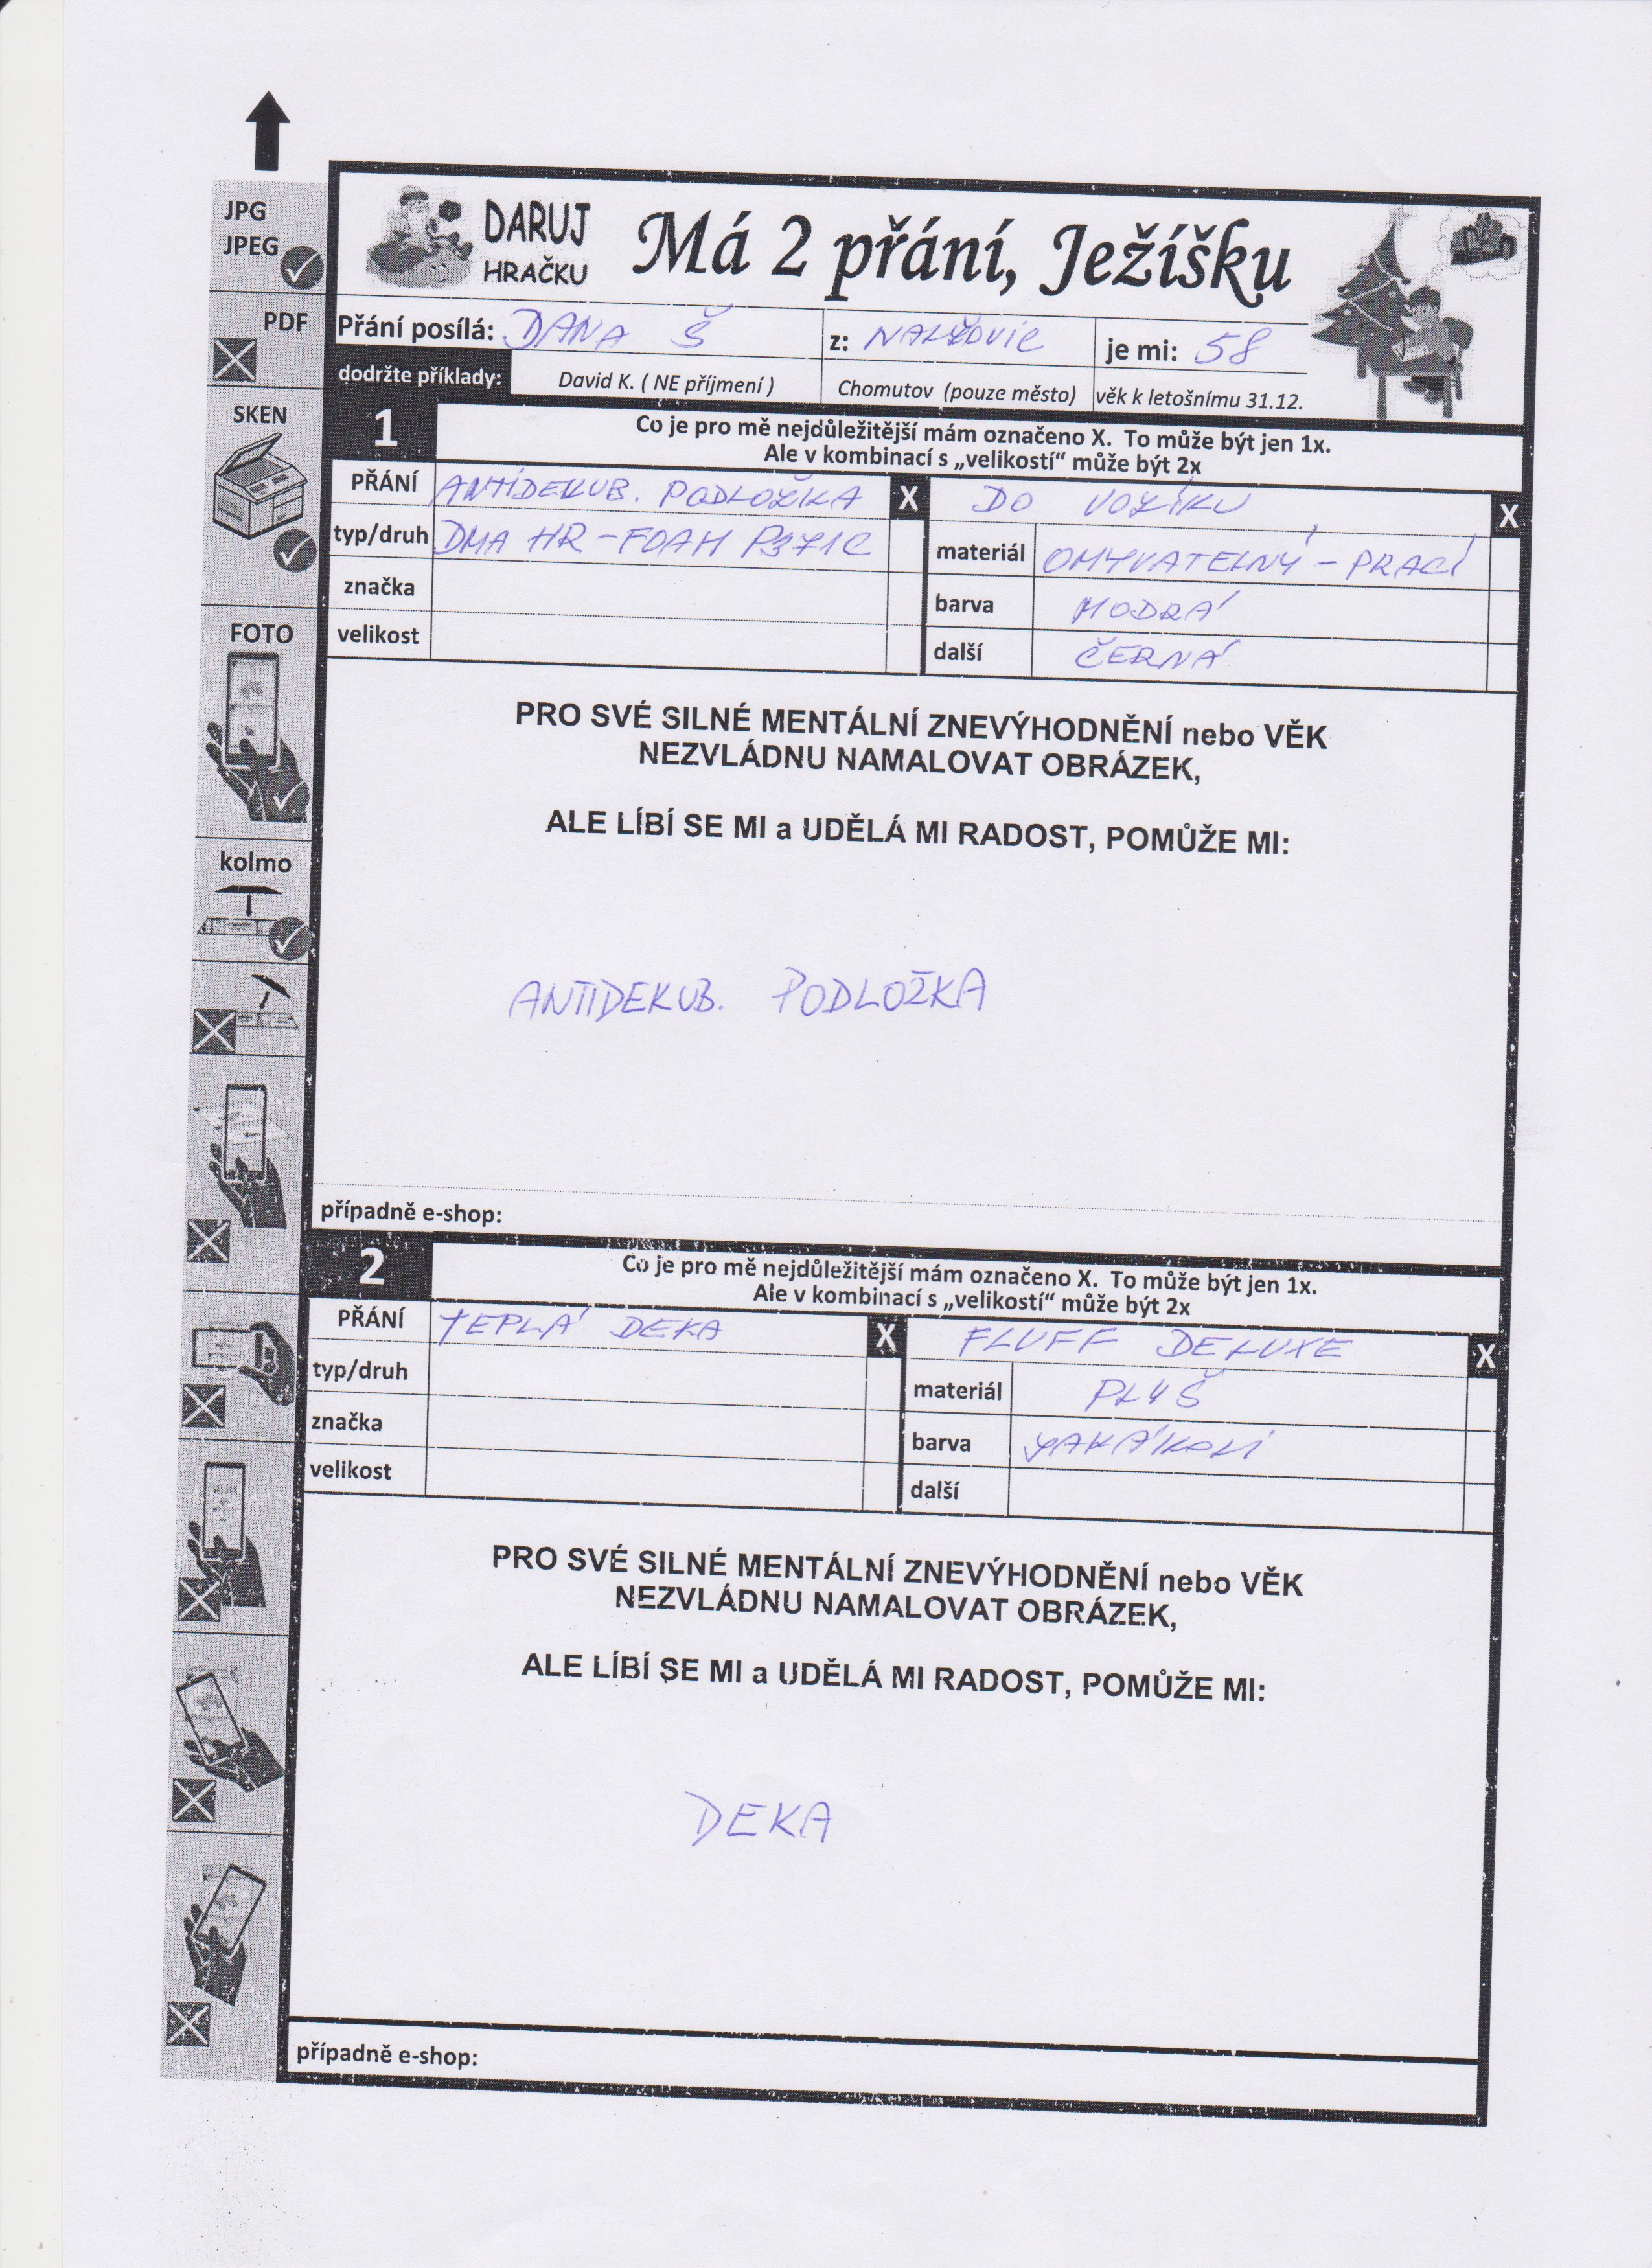 JPG
JPEG
PDF
SKEN
FOTO
kolmo
DARUJ
HRAČKU
Má 2 přání, Ježíšku
Přání posílá: DANA Š z: NALŽOVIC je mi: 58
dodržte příklady: David K. ( NE příjmení ) Chomutov (pouze město) věk k letošnímu 31.12.
1 Co je pro mě nejdůležitější mám označeno X. To může být jen 1x.
Ale v kombinací s „velikostí“ může být 2x
PŘÁNÍ ANTIDEKUB. PODLOŽKA X DO VOZÍKU X
typ/druh DMA HR-FOAM P371C materiál OMYVATELNÝ - PRACÍ
značka barva MODRÁ
velikost další ČERNÁ
PRO SVÉ SILNÉ MENTÁLNÍ ZNEVÝHODNĚNÍ nebo VĚK
NEZVLÁDNU NAMALOVAT OBRÁZEK,
ALE LÍBÍ SE MI a UDĚLÁ MI RADOST, POMŮŽE MI:
ANTIDEKUB. PODLOŽKA
případně e-shop:
2 Co je pro mě nejdůležitější mám označeno X. To může být jen 1x.
Ale v kombinací s „velikostí“ může být 2x
PŘÁNÍ TEPLÁ DEKA X FLUFF DELUXE X
typ/druh materiál PLYŠ
značka barva JAKÁKOLI
velikost další
PRO SVÉ SILNÉ MENTÁLNÍ ZNEVÝHODNĚNÍ nebo VĚK
NEZVLÁDNU NAMALOVAT OBRÁZEK,
ALE LÍBÍ SE MI a UDĚLÁ MI RADOST, POMŮŽE MI:
DEKA
případně e-shop: